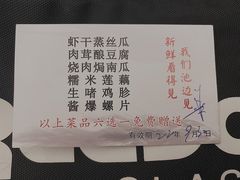 虾干蒸丝瓜
肉茸酿豆腐
烧肉焗南瓜
糯米莲藕
生啫鸡胗
酱爆螺片
我们池边見
新鲜看得見
以上菜品六选一免费赠送
有效期